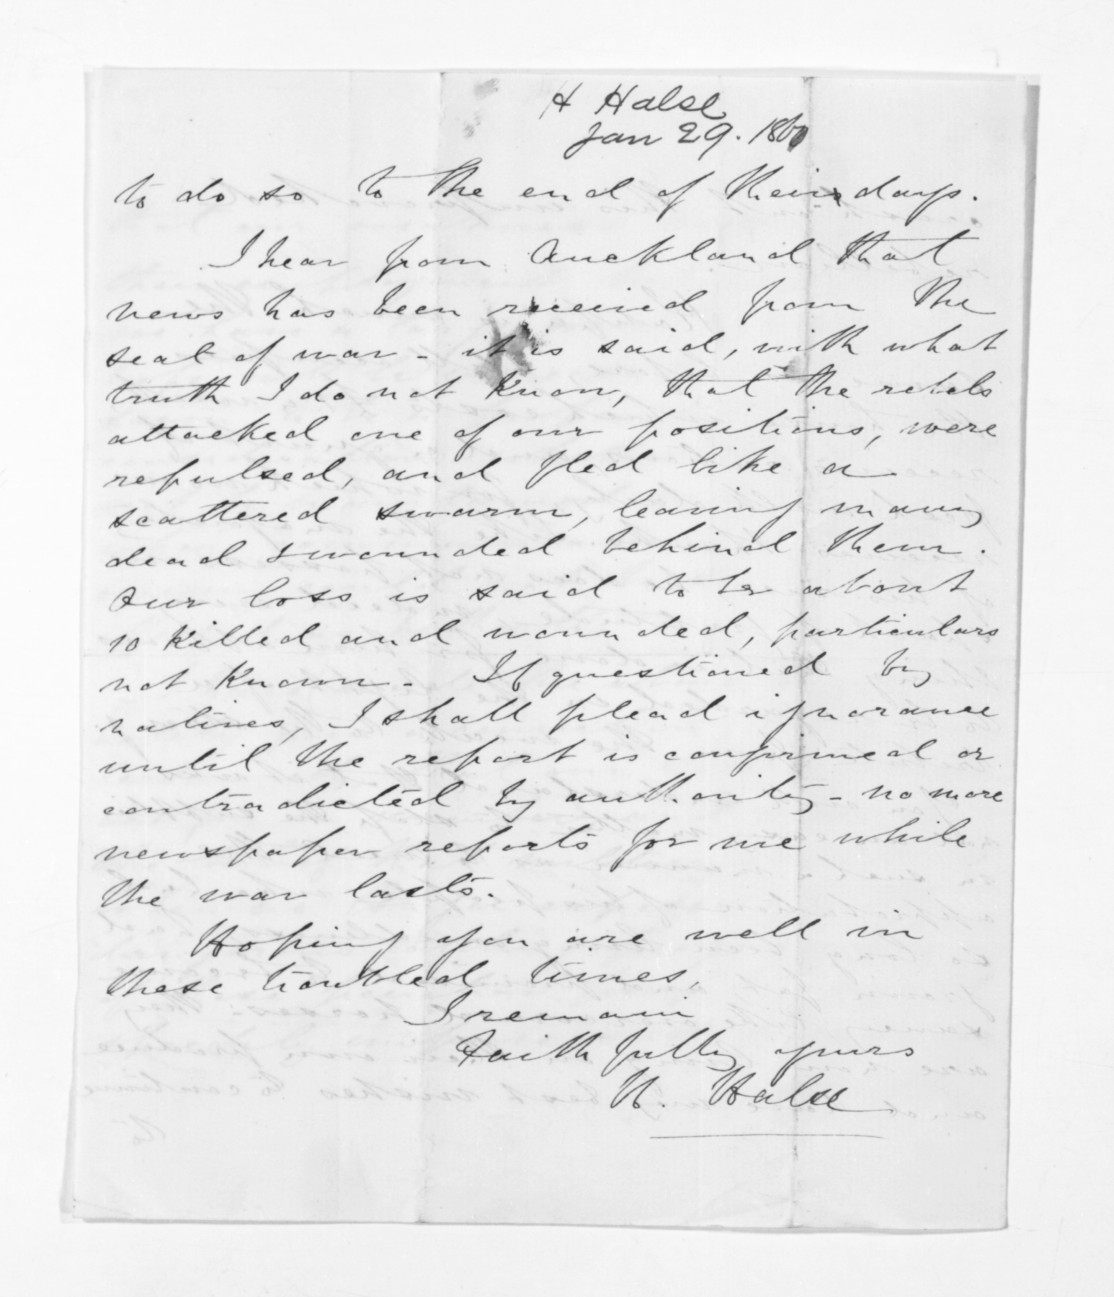 H Halse
Jan 29. 186
to do so to the end of their days.
I hear from Auckland that
news has been received from the
seat of war - it is said, with what
truth I do not know, that the rebels
attacked one of our positions, were
repulsed, and fled like a
scattered swarm, leaving many
dead & wounded behind them.
Our loss is said to be about
10 killed and wounded, particulars
not known. If questioned by
natives, I shall plead ignorance
until the report is confirmed or
contradicted by authority - no more
newspaper reports for me while
the war lasts.
Hoping you are well in
these troubled times,
I remain
Faithfully yours
H. Halse